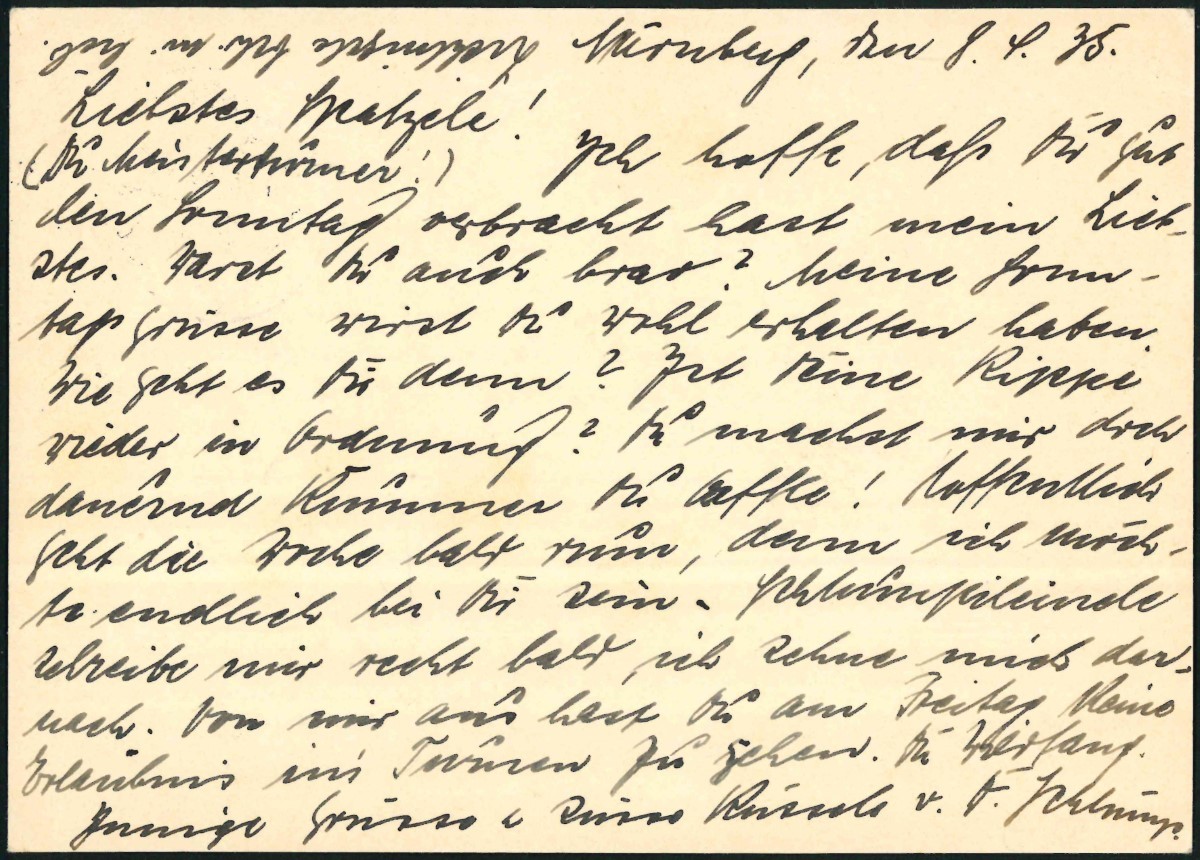 Nürnberg, den 8.4.35.
Liebstes Spatzele!
(Du Meisterturner!) Ich hoffe, daß Du gut
den Sonntag verbracht hast mein Lieb-
stes. Warst Du auch brav? Meine Sonn-
tagsgrüsse wirst Du wohl erhalten haben.
Wie geht es Dir denn? Ist Deine Rippe
wieder in Ordnung? Du machst mir doch
dauernd Kummer Du Affle! Hoffentlich
geht die Woche bald rum, denn ich möch-
te endlich bei Dir sein.
schreibe mir recht bald, ich sehne mich dar-
nach. Von mir aus hast Du am Freitag keine
Erlaubnis ins Turnen zu gehen. Du
Innige Grüsse u süsse Küssele v. D.